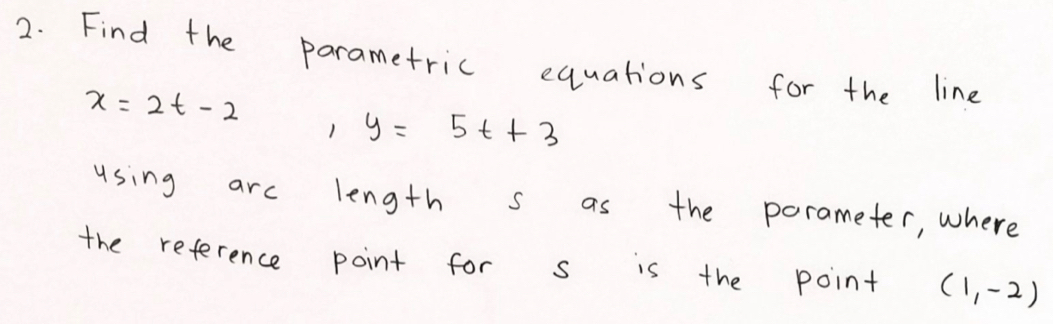 2. Find the parametric equations for the line
x = 2t - 2 , y = 5t + 3
using arc length s as the parameter, where
the reference point for s is the point (1,-2)